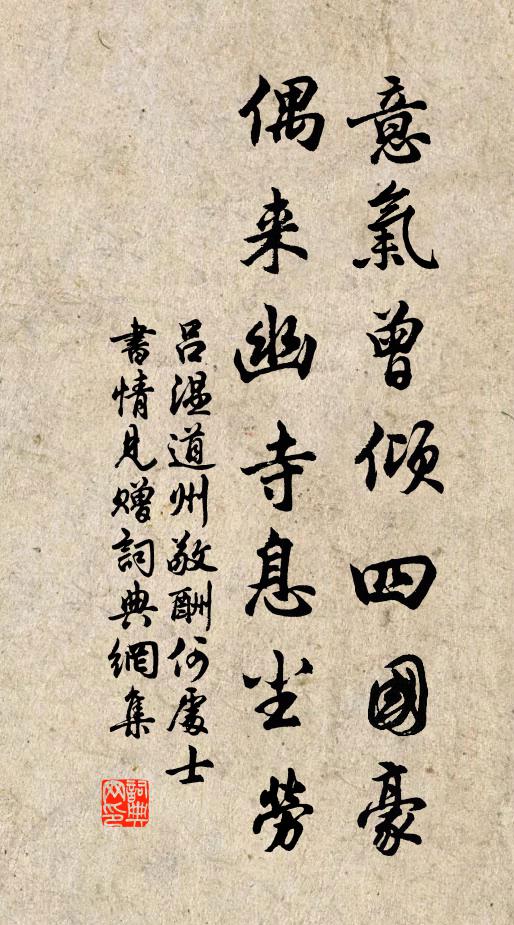 意氣曾傾四國豪
偶来幽寺息尘勞
吕溫道州敬酬何處士
書情見贈詞典網集
詞典网印